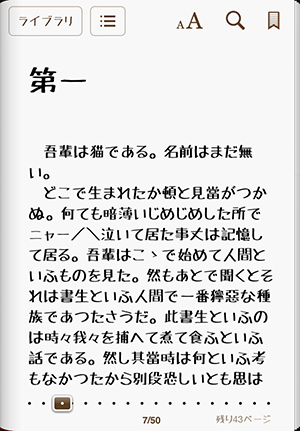 ライブラリ
AA
第一
吾輩は猫である。名前はまだ無
い。
どこで生まれたか頓と見當がつか
ぬ。何ても暗薄いじめじめした所で
ニャー／＼泣いて居た事丈は記憶し
て居る。吾輩はこゝで始めて人間と
いふものを見た。然もあとで聞くとそ
れは書生といふ人間で一番獰惡な種
族であつたさうだ。此書生といふの
は時々我々を捕へて煮て食ふといふ
話である。然し其當時は何といふ考
もなかつたから別段恐しいとも思は
7/50
残り43ページ